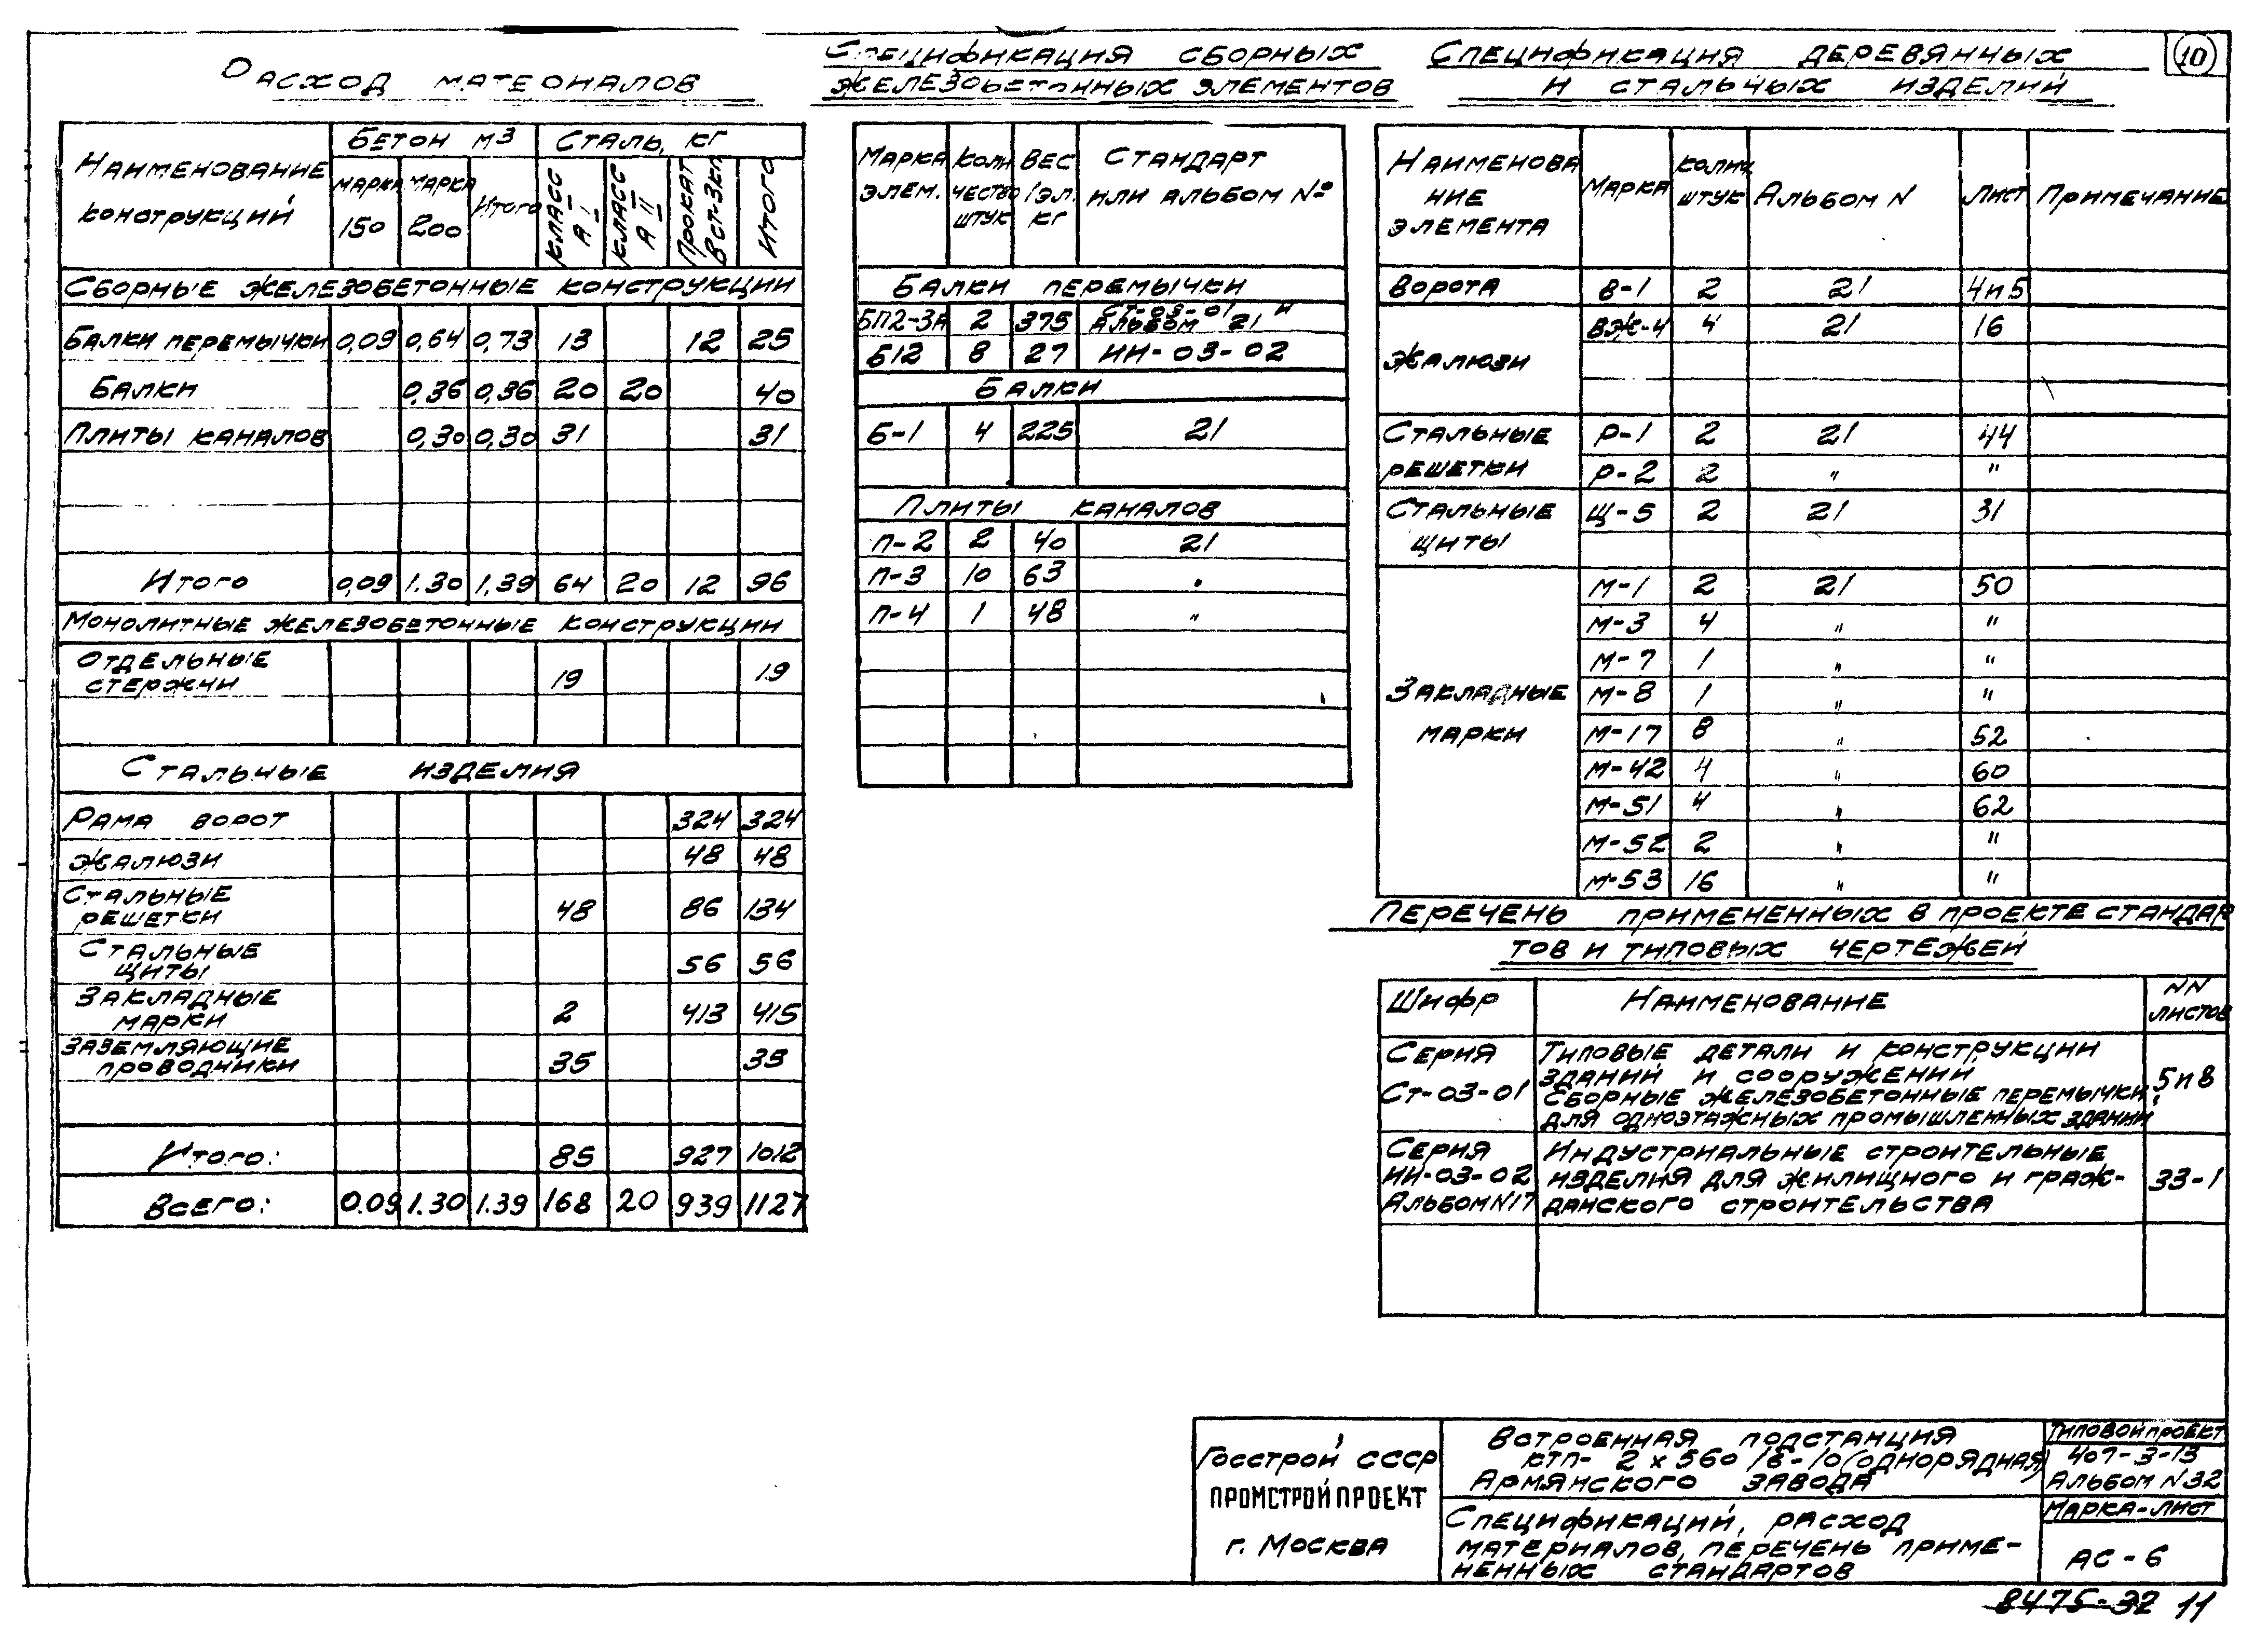 10
Расход материалов
Наименование конструкций | Бетон м3 | Сталь, кг
марка 150 | марка 200 | Итого | Класс А I | Класс А II | Прокат Вст-3кп | Итого
Сборные железобетонные конструкции
Балки перемычки 0,09 0,64 0,73 13 12 25
Балки 0,36 0,36 20 20 40
Плиты каналов 0,30 0,30 31 31
Итого 0,09 1.30 1,39 64 20 12 96
Монолитные железобетонные конструкции
Отдельные стержни 19 19
Стальные изделия
Рама ворот 324 324
Жалюзи 48 48
Стальные решетки 48 86 134
Стальные щиты 56 56
Закладные марки 2 413 415
Заземляющие проводники 35 35
Итого: 85 927 1012
Всего: 0.09 1.30 1.39 168 20 939 1127
Спецификация сборных
железобетонных элементов
Марка элем. | Количество штук | Вес 1эл. кг | Стандарт или альбом №
Балки перемычки
БП2-3А 2 375 Ст-03-01 и Альбом 21
Б12 8 27 ИИ-03-02
Балки
Б-1 4 225 21
Плиты каналов
П-2 2 40 21
П-3 10 63 "
П-4 1 48 "
Спецификация деревянных
и стальных изделий
Наименование элемента | Марка | Колич. штук | Альбом N | Лист | Примечание
Ворота В-1 2 21 4и5
Жалюзи ВЖ-4 4 21 16
Стальные решетки Р-1 2 21 44
Р-2 2 " "
Стальные щиты Щ-5 2 21 31
Закладные марки М-1 2 21 50
М-3 4 " "
М-7 1 " "
М-8 1 " "
М-17 8 " 52
М-42 4 " 60
М-51 4 " 62
М-52 2 " "
М-53 16 " "
Перечень примененных в проекте стандар
тов и типовых чертежей
Шифр | Наименование | NN листов
Серия Ст-03-01 | Типовые детали и конструкции зданий и сооружений Сборные железобетонные перемычки для одноэтажных промышленных зданий | 5и8
Серия ИИ-03-02 Альбом N17 | Индустриальные строительные изделия для жилищного и гражданского строительства | 33-1
Госстрой СССР
ПРОМСТРОЙПРОЕКТ
г. Москва
Встроенная подстанция
КТП-2х560/6-10(однорядная)
Армянского завода
Спецификаций, расход
материалов, перечень приме-
ненных стандартов
Типовой проект
407-3-13
Альбом N32
Марка-лист
АС-6
8475-32 11